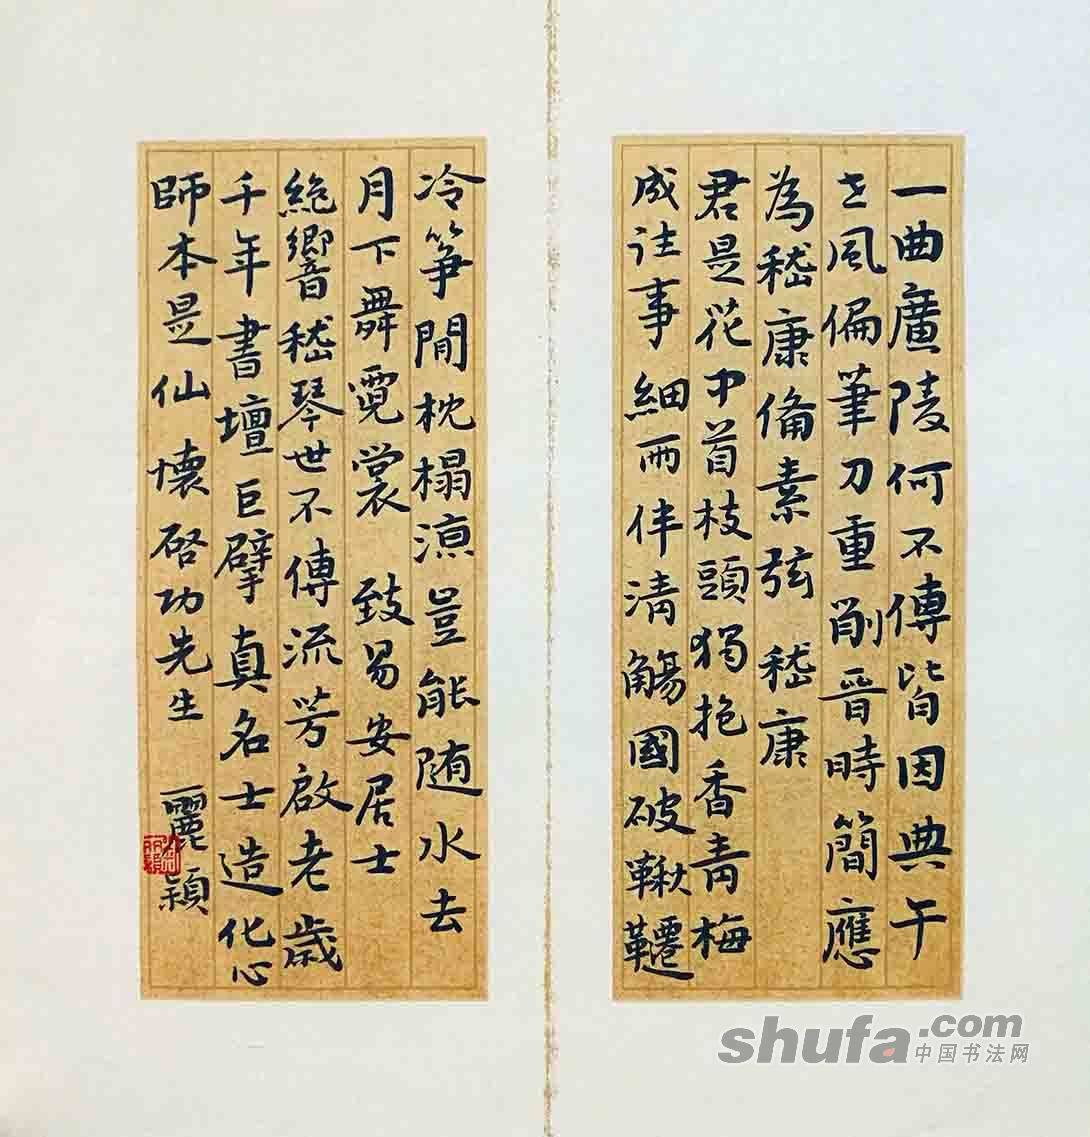 一曲廣陵何不傳皆因典午
世風偏筆刀重削晉時簡應
為嵇康備素弦 嵇康
君是花中首枝頭獨抱香青梅
成往事細雨伴清觴國破鞦韆
冷箏閒枕榻涼豈能随水去
月下舞霓裳 致易安居士
絕響嵇琴世不傳流芳啟老歲
千年書壇巨擘真名士造化心
師本是仙 懷啓功先生 麗穎
shufa.com
中国书法网